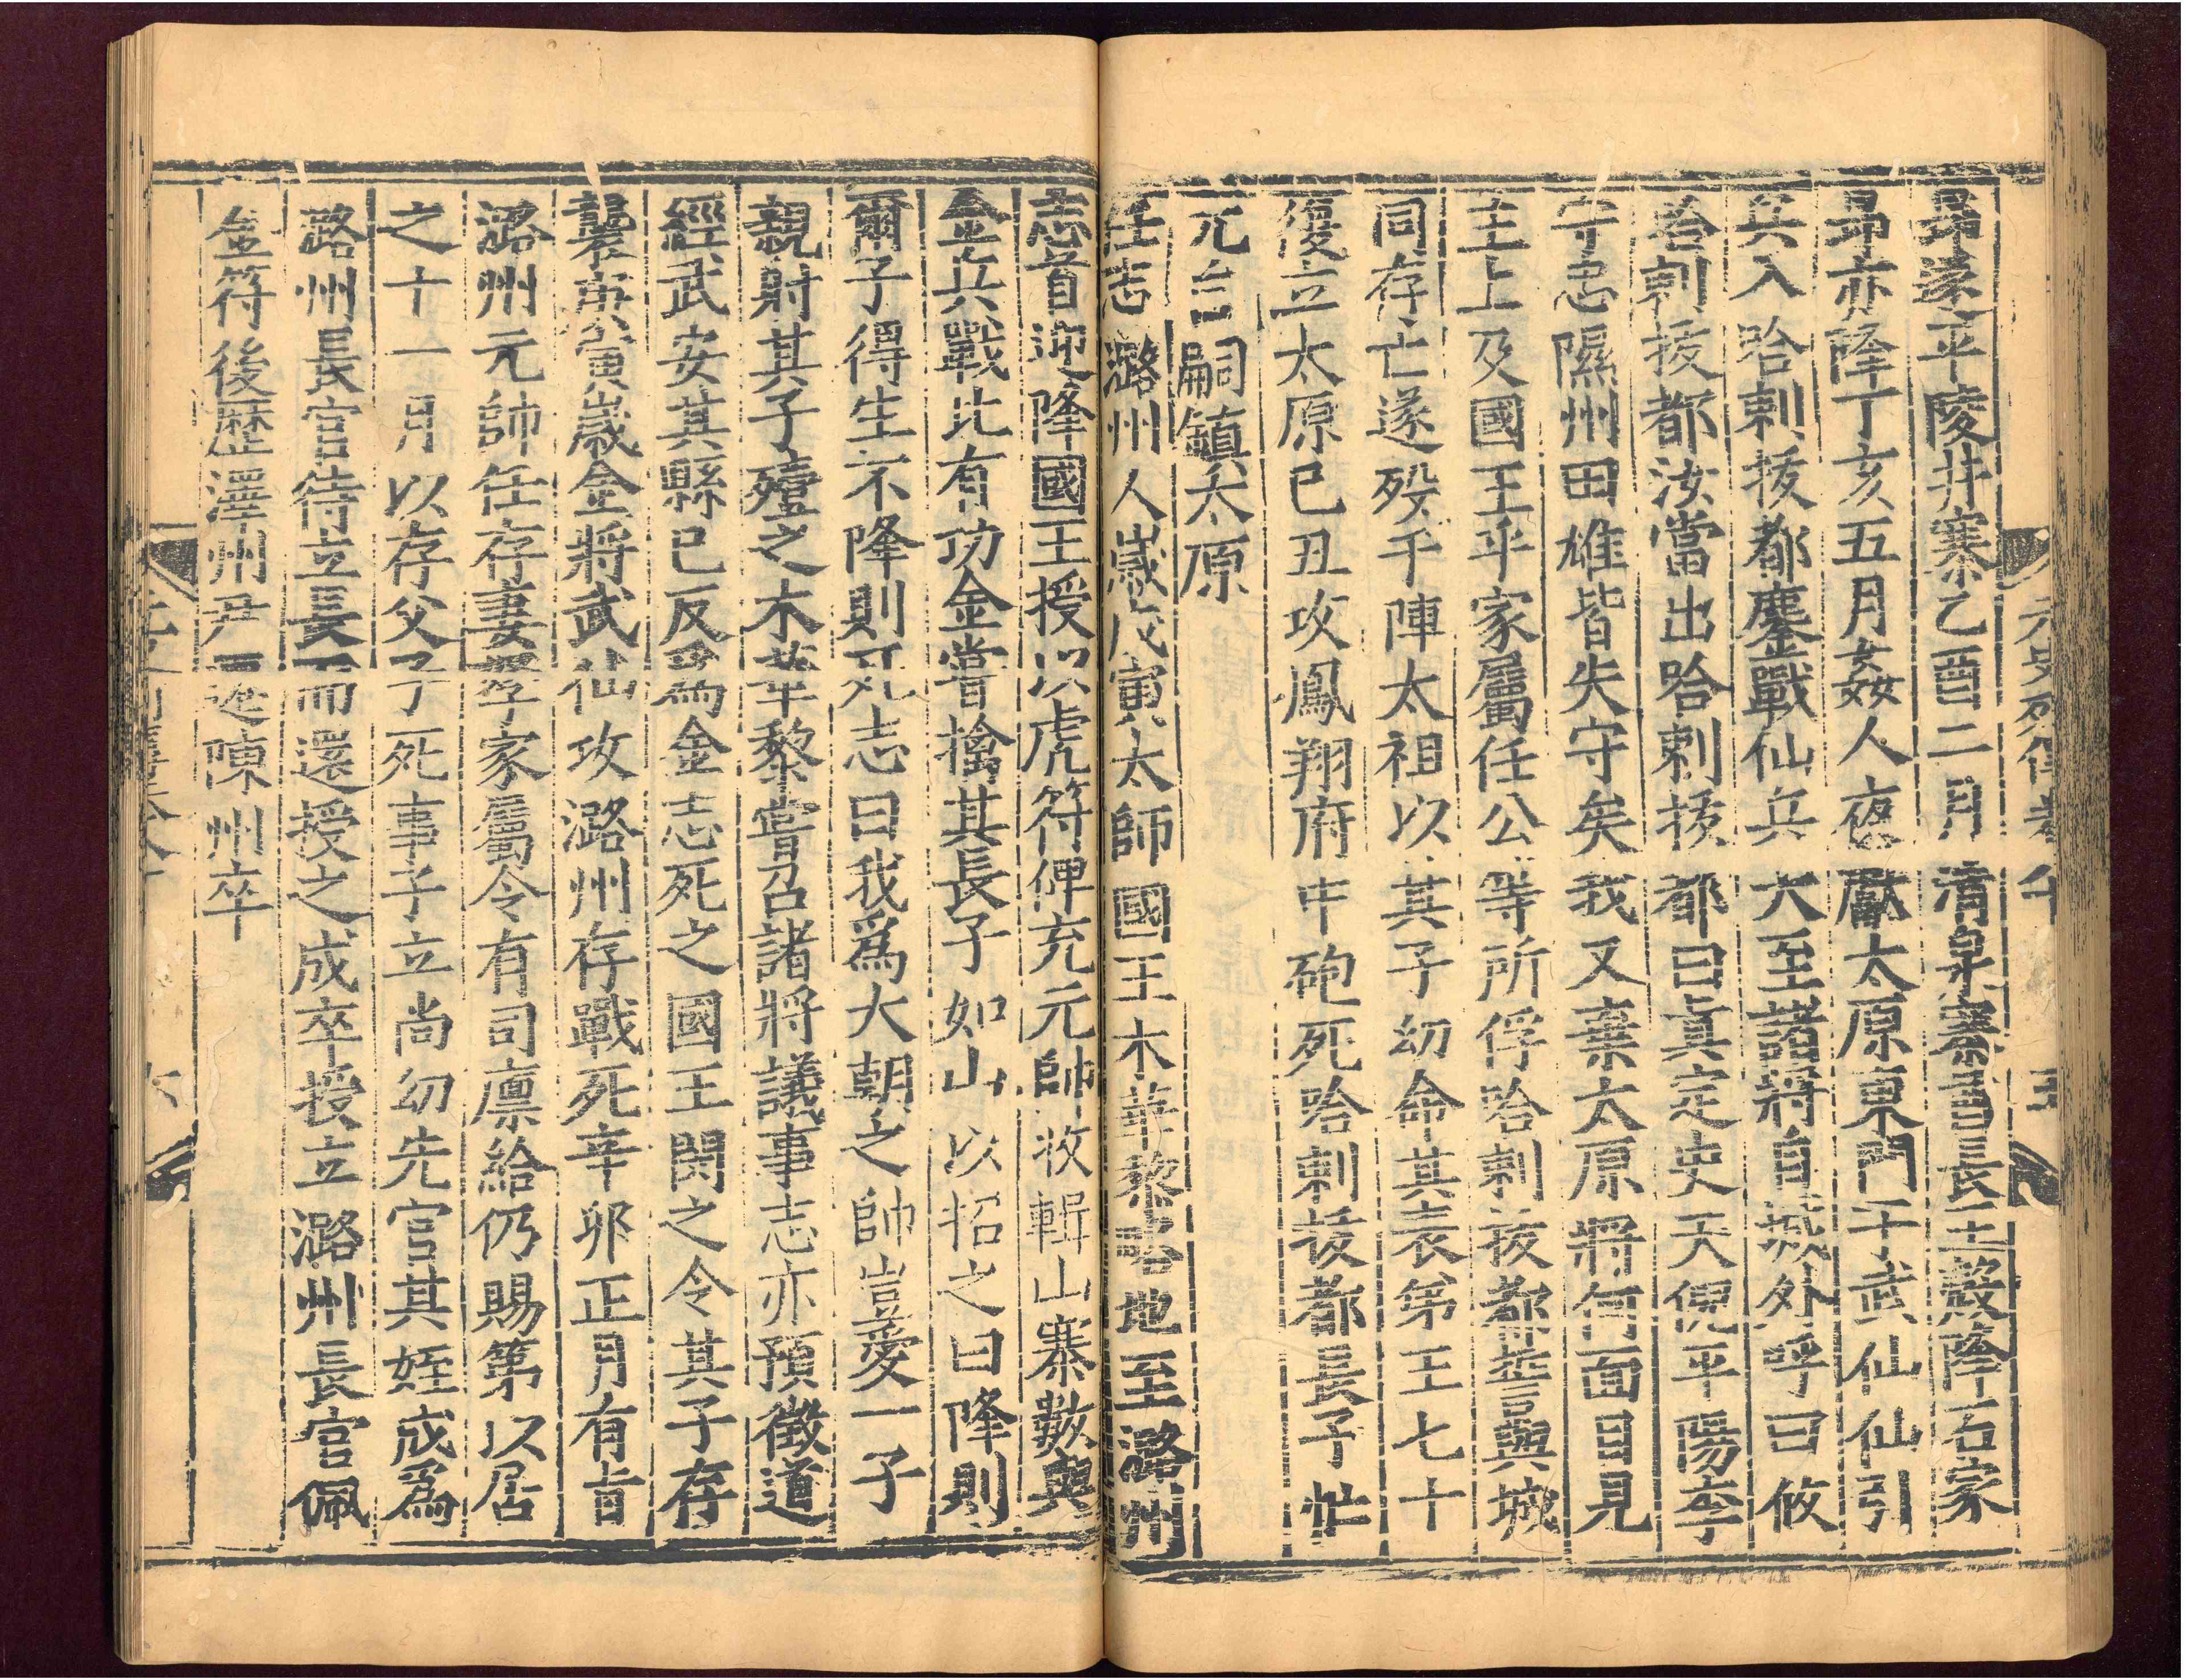 昂遂平陵井寨乙酉二月清泉寨酋長王殿降石家
昂亦降丁亥五月姦人夜獻太原東門于武仙仙引
兵入哈剌拔都鏖戰仙兵大至諸將自城外呼曰攸
哈剌拔都汝當出哈剌拔都曰真定史天倪平陽李
守忠隰州田雄皆失守矣我又棄太原將何面目見
主上及國王乎家屬任公等所俘哈剌拔都誓與城
同存亡遂歿于陣太祖以其子幼命其表弟王七十
復立太原己丑攻鳳翔府中砲死哈剌拔都長子忙
兀台嗣鎮太原
任志潞州人歲戊寅太師國王木華黎略地至潞州
志首迎降國王授以虎符俾充元帥收輯山寨數與
金兵戰比有功金嘗擒其長子如山以招之曰降則
爾子得生不降則死志曰我爲大朝之帥豈愛一子
親射其子殪之木華黎嘗召諸將議事志亦預徵道
經武安其縣已反爲金志死之國王閔之令其子存
襲庚寅歲金將武仙攻潞州存戰死辛卯正月有旨
潞州元帥任存妻孥家屬令有司廩給仍賜第以居
之十一月以存父子死事子立尚幼先官其姪成爲
潞州長官待立長而還授之成卒授立潞州長官佩
金符後歷澤州尹遷陳州卒